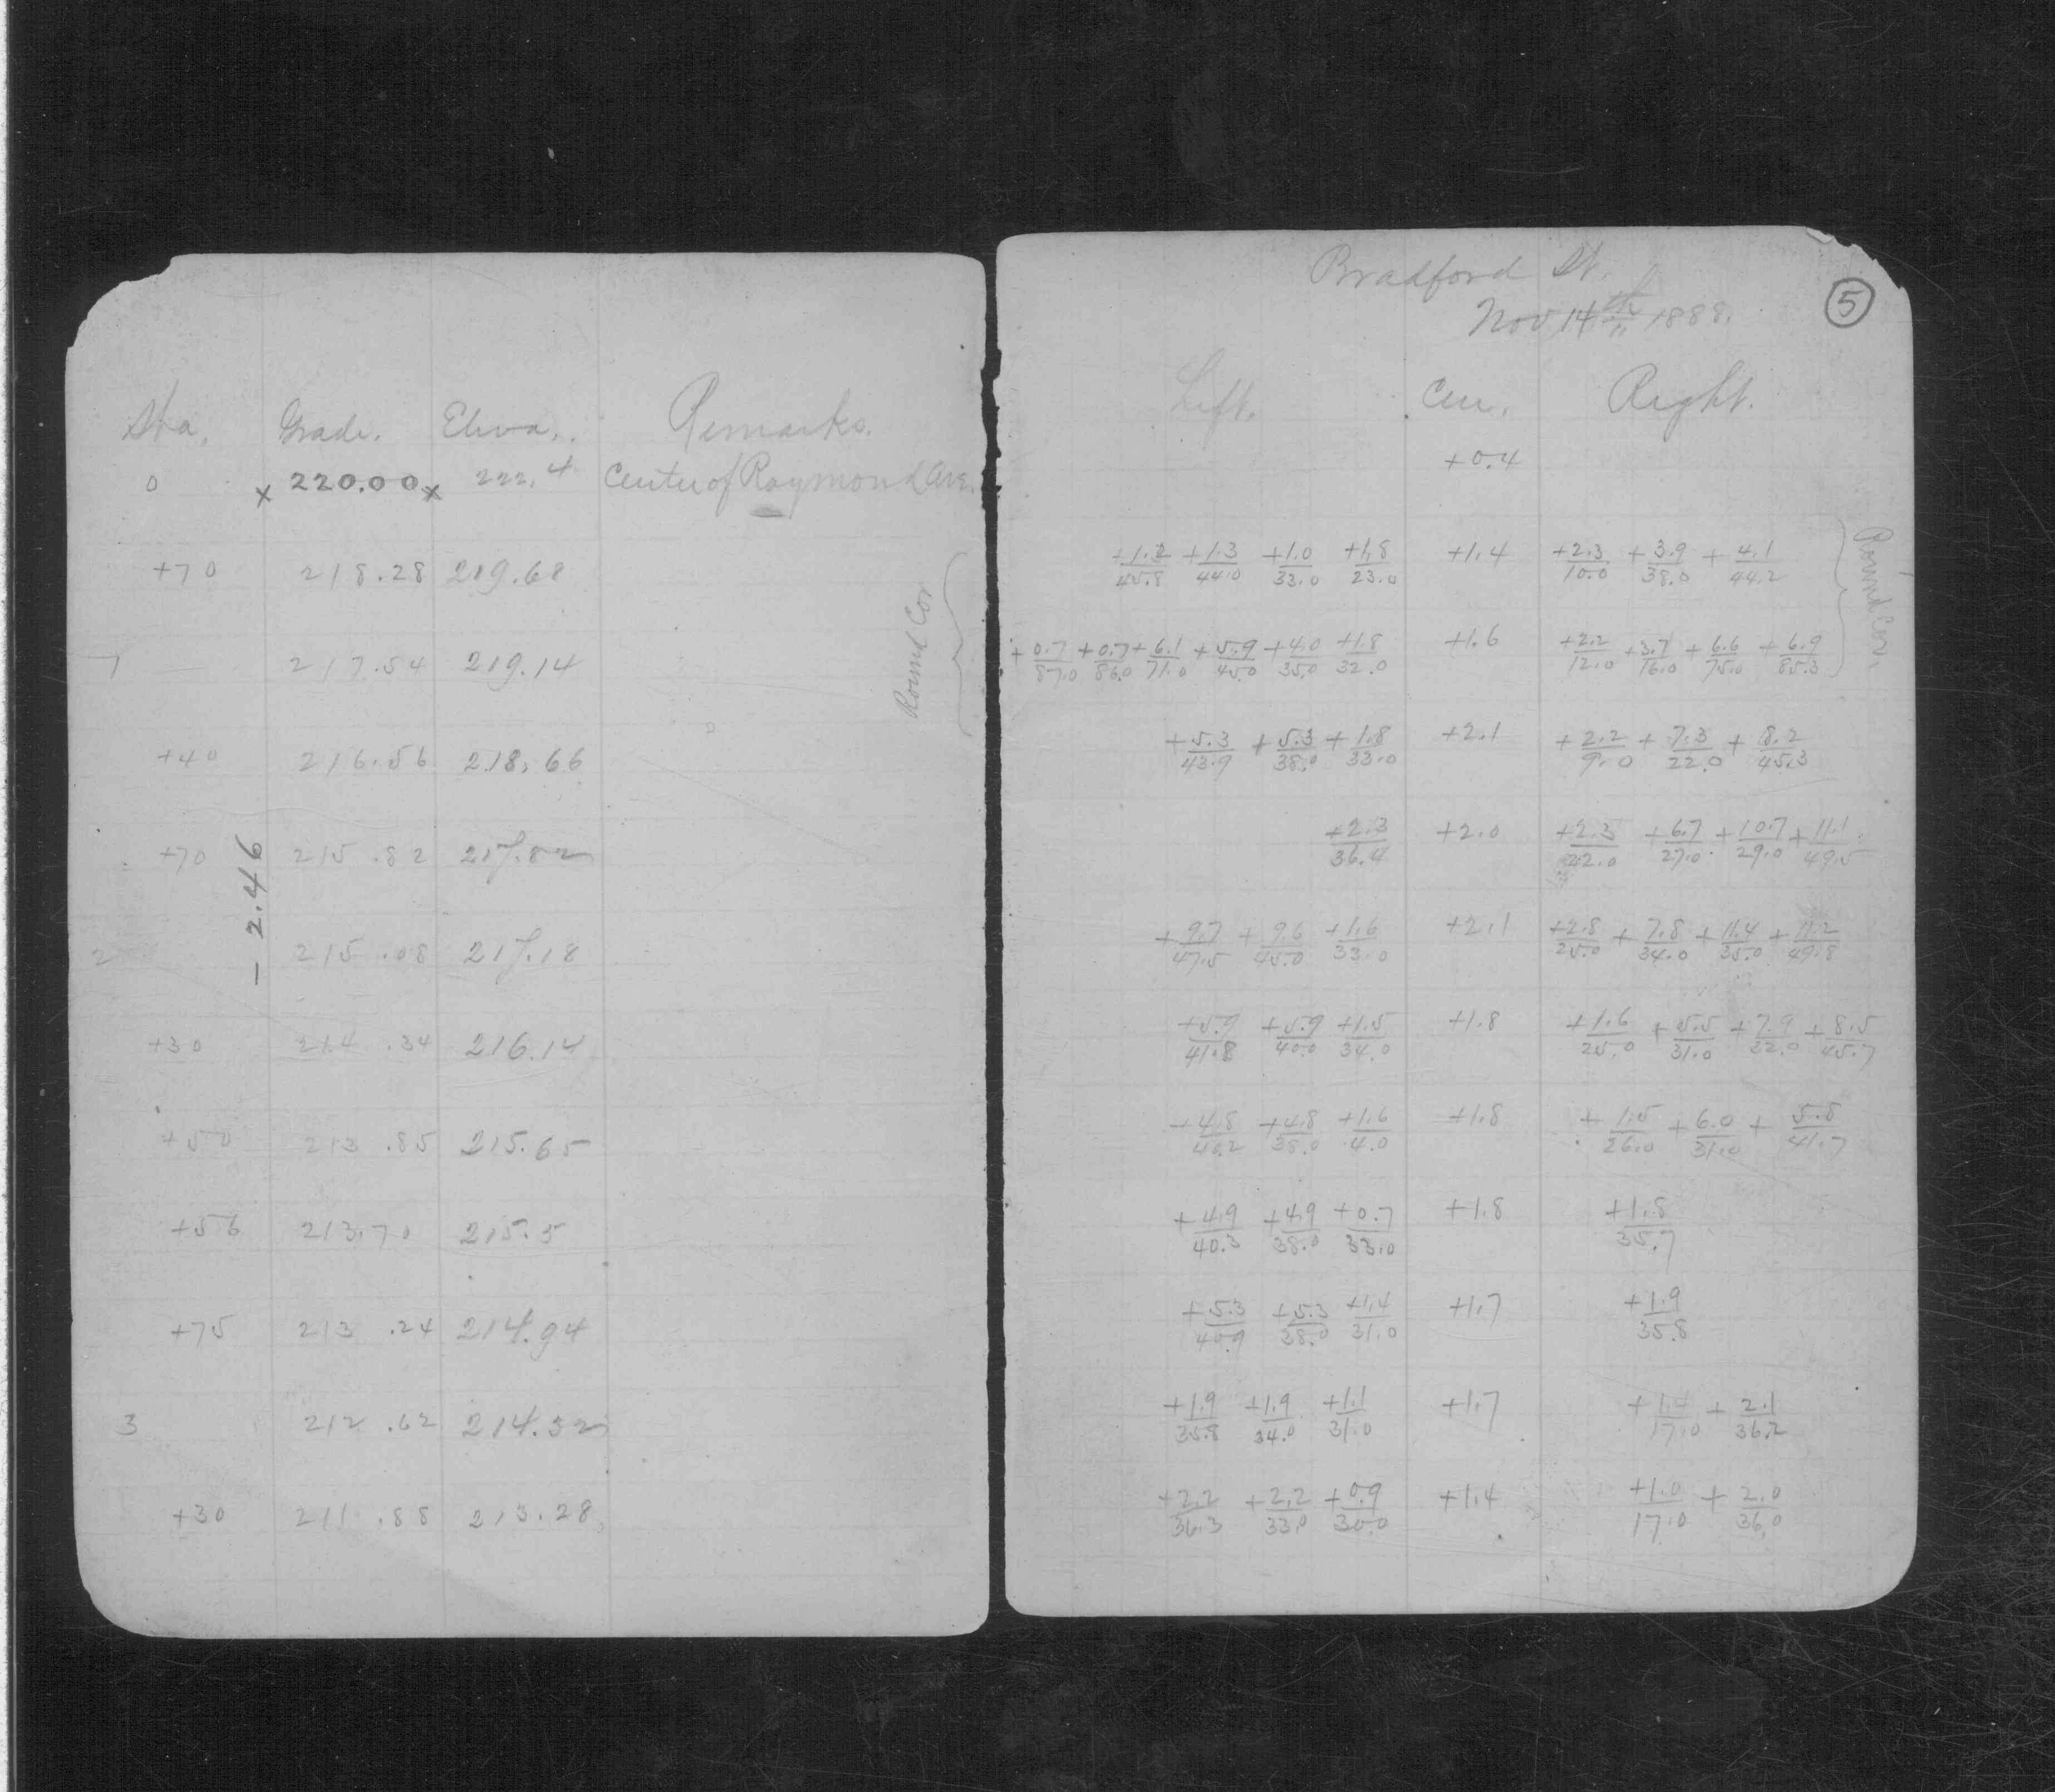 Sta. Grade. Eleva. Remarks.
0 x 220.00 x 222.4 Center of Raymond Ave.
+70 218.28 219.68
1 217.54 219.14
Round Cor
+40 216.56 218.66
+70 215.82 217.82
- 2.46
2 215.08 217.18
+30 214.34 216.14
+50 213.85 215.65
+56 213.70 215.5
+75 213.24 214.94
3 212.62 214.32
+30 211.88 213.28
Bradford St.
5
Nov 14th 1888.
Left. Cen. Right.
+0.4
+1.2/45.8 +1.3/44.0 +1.0/33.0 +1.8/23.0 +1.4 +2.3/10.0 +3.9/38.0 +4.1/44.2
Round Cor.
+0.7/87.0 +0.7/86.0 +6.1/71.0 +5.9/45.0 +4.0/35.0 +1.8/32.0 +1.6 +2.2/12.0 +3.7/16.0 +6.6/75.0 +6.9/85.3
+5.3/43.9 +5.3/38.0 +1.8/33.0 +2.1 +2.2/9.0 +7.3/22.0 +8.2/45.3
+2.3/36.4 +2.0 +2.3/22.0 +6.7/27.0 +10.7/29.0 +11.1/49.5
+9.7/47.5 +9.6/45.0 +1.6/33.0 +2.1 +2.8/25.0 +7.8/34.0 +11.4/35.0 +11.2/49.8
+5.9/41.8 +5.9/40.0 +1.5/34.0 +1.8 +1.6/25.0 +5.5/31.0 +7.9/32.0 +8.5/45.7
+4.8/40.2 +4.8/38.0 +1.6/4.0 +1.8 +1.5/26.0 +6.0/31.0 +5.8/41.7
+4.9/40.3 +4.9/38.0 +0.7/33.0 +1.8 +1.8/35.7
+5.3/40.9 +5.3/38.0 +1.4/31.0 +1.7 +1.9/35.8
+1.9/35.8 +1.9/34.0 +1.1/31.0 +1.7 +1.4/17.0 +2.1/36.2
+2.2/36.3 +2.2/33.0 +0.9/30.0 +1.4 +1.0/17.0 +2.0/36.0